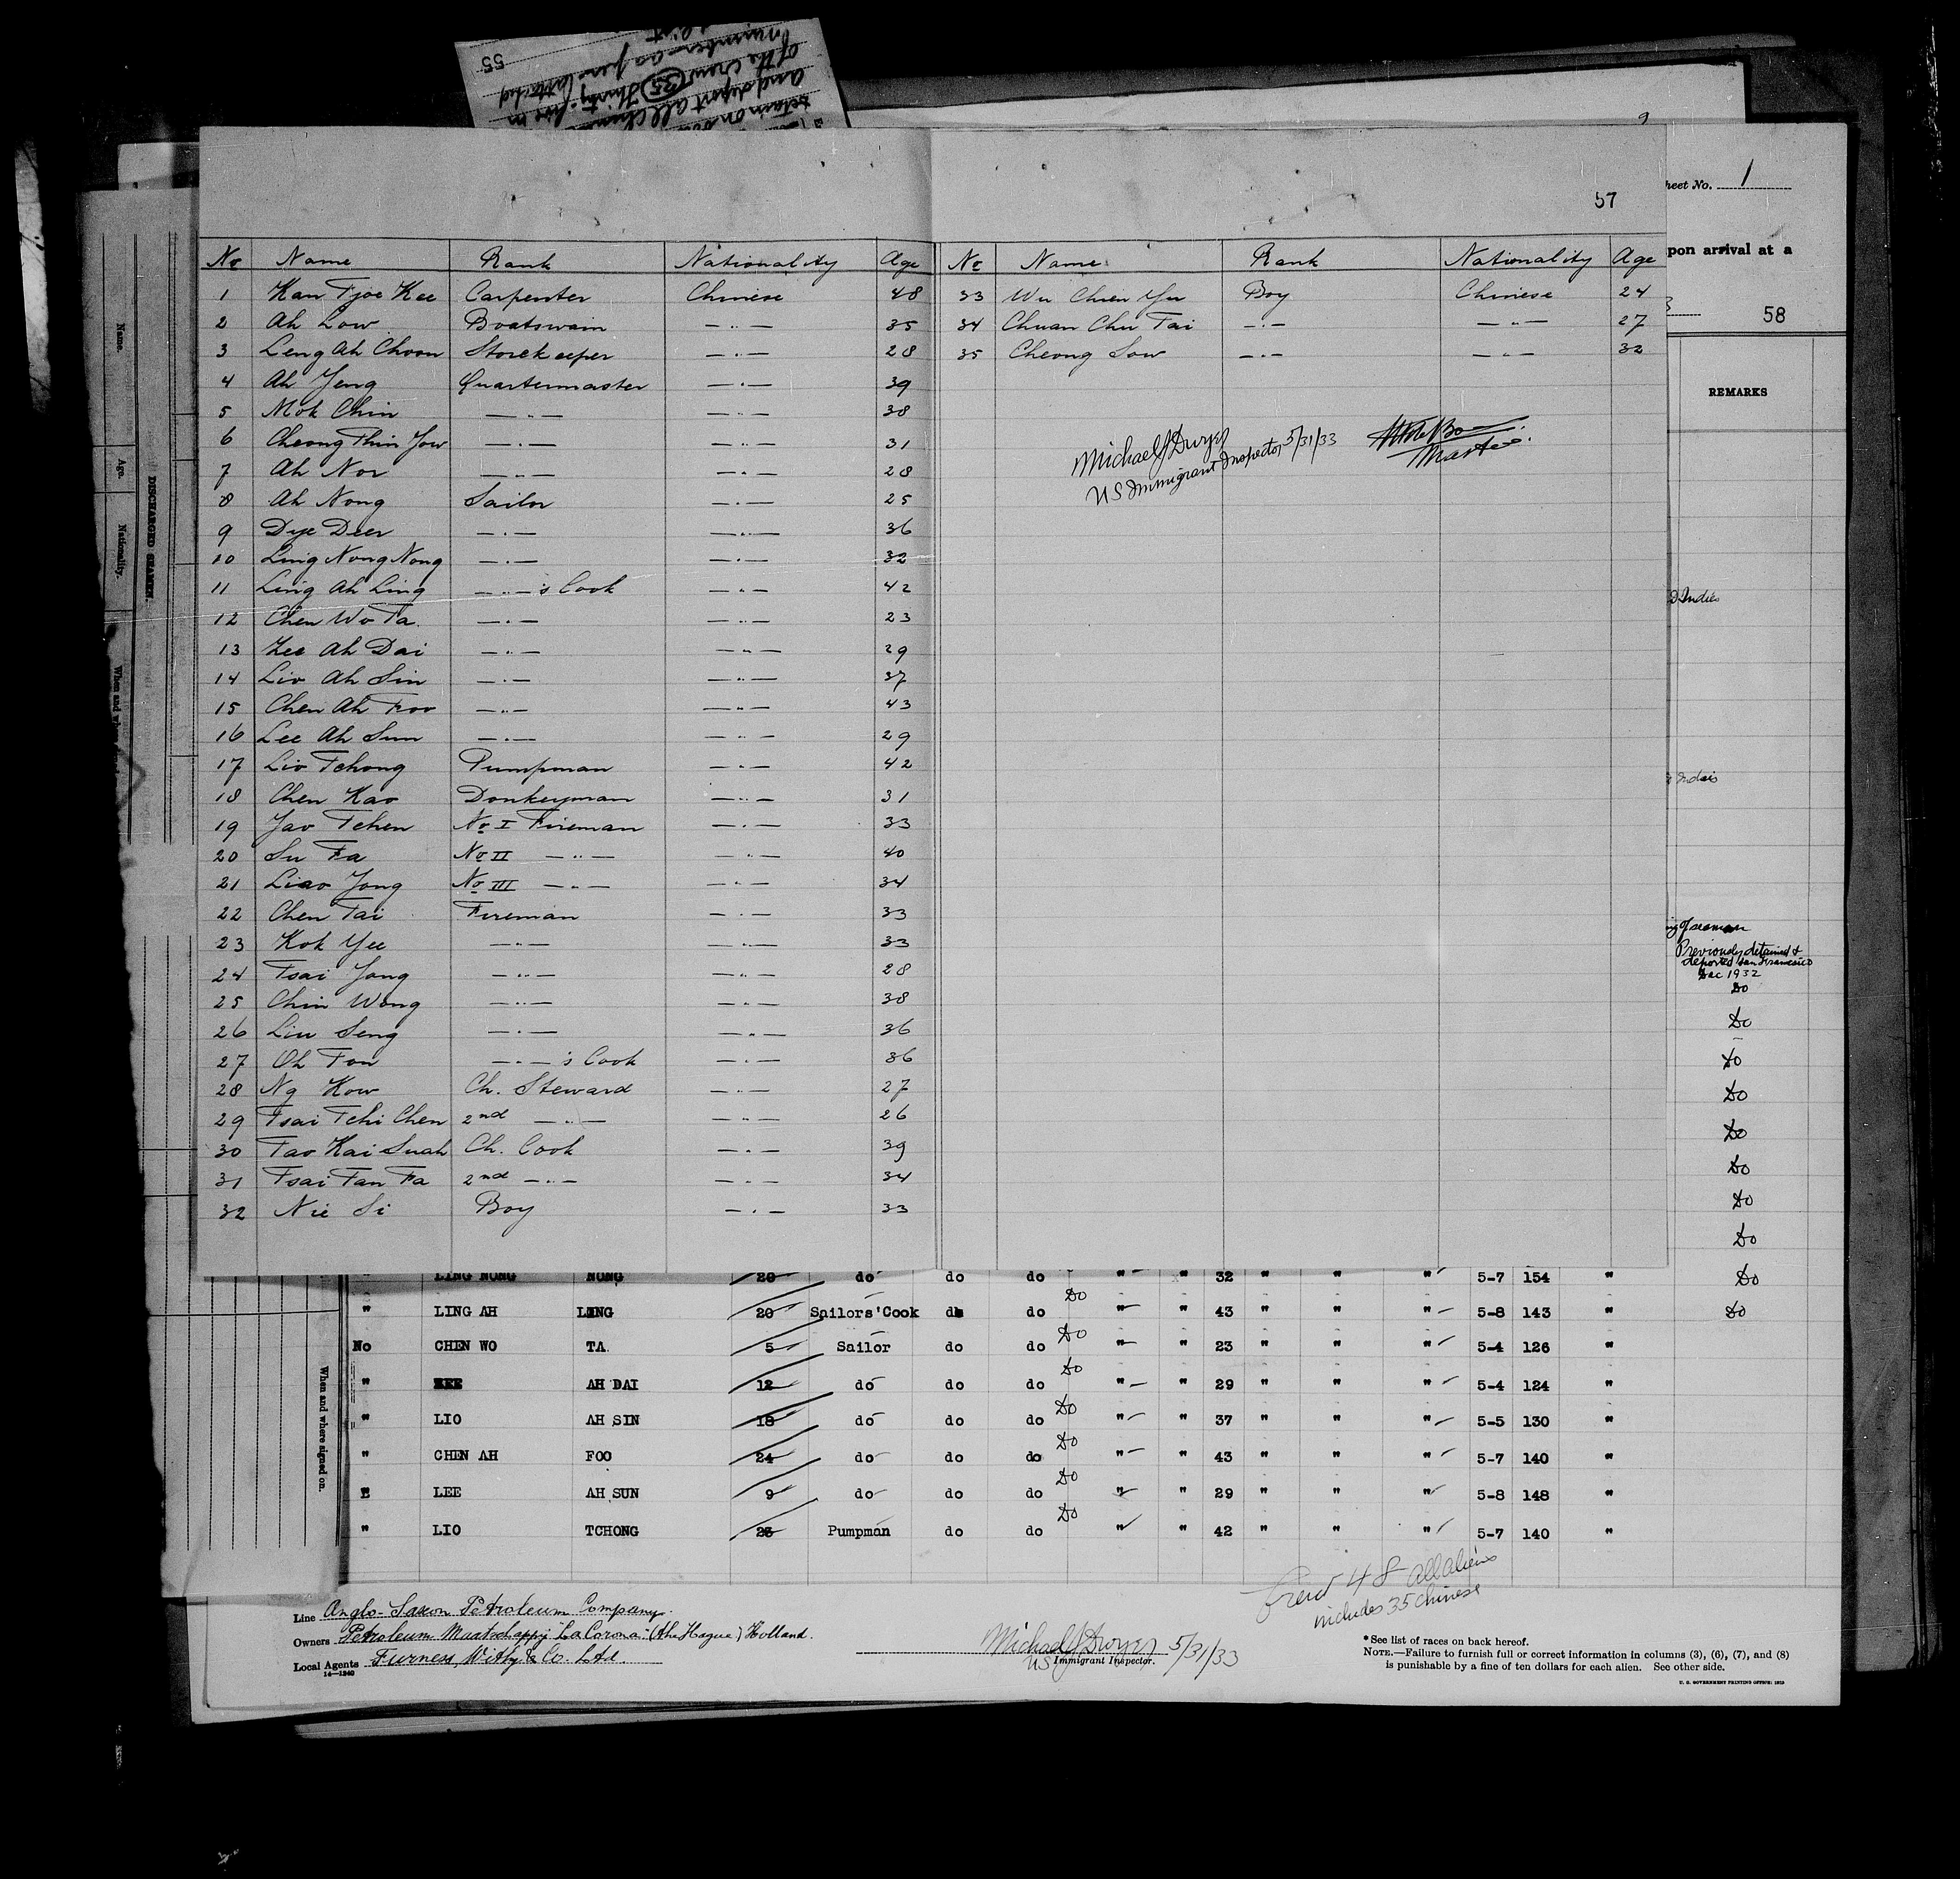 55
number as per attached
of the crew (35) Thirty-five in
and deport all Chinese
57
No Name Rank Nationality Age No Name Rank Nationality Age
1 Kan Tjoe Kee Carpenter Chinese 48 33 Wu Chien Yu Boy Chinese 24
2 Ah Low Boatswain —"— 35 34 Chuan Chu Tai —"— —"— 27
3 Leng Ah Choon Storekeeper —"— 28 35 Cheong Sow —"— —"— 32
4 Ah Jeng Quartermaster —"— 39
5 Mok Chin —"— 38
6 Cheong Thin Yow —"— —"— 31
7 Ah Nor —"— —"— 28
8 Ah Nong Sailor —"— 25
9 Dye Deer —"— —"— 36
10 Ling Nong Nong —"— —"— 32
11 Ling Ah Ling —"—'s Cook —"— 42
12 Chen Wo Ta —"— —"— 23
13 Zee Ah Dai —"— —"— 29
14 Lio Ah Sin —"— —"— 37
15 Chen Ah Foo —"— —"— 43
16 Lee Ah Sun —"— —"— 29
17 Lio Tchong Pumpman —"— 42
18 Chen Kao Donkeyman —"— 31
19 Jao Tchen No I Fireman —"— 33
20 Su Fa No II —"— —"— 40
21 Liao Jong No III —"— —"— 34
22 Chen Tai Fireman —"— 33
23 Kok Yee —"— —"— 33
24 Tsai Jong —"— —"— 28
25 Chin Wong —"— —"— 38
26 Liu Seng —"— —"— 36
27 Oh Fon —"—'s Cook —"— 36
28 Ng Kow Ch. Steward —"— 27
29 Tsai Tchi Chen 2nd —"— —"— 26
30 Tao Kai Suah Ch. Cook —"— 39
31 Tsai Tan Fa 2nd —"— —"— 34
32 Nie Si Boy —"— 33
Michael J Dwyer
US Immigrant Inspector 5/31/33
Master
heet No. 1
pon arrival at a
58
REMARKS
D Indies
Indies
seaman
Previously detained &
deported San Francisco
Dec 1932
Do
Do
Do
Do
Do
Do
Do
Do
Name.
Age.
Nationality.
DISCHARGED SEAMEN.
When and where signed on.
" LING NONG NONG 20 do do do " " 32 " " " 5-7 154 " Do
" LING AH LING 20 Sailors'Cook do do Do " " 43 " " " 5-8 143 " Do
No CHEN WO TA 5 Sailor do do Do " " 23 " " " 5-4 126 "
" ZEE AH DAI 12 do do do Do " " 29 " " " 5-4 124 "
" LIO AH SIN 18 do do do Do " " 37 " " " 5-5 130 "
" CHEN AH FOO 24 do do do Do " " 43 " " " 5-7 140 "
" LEE AH SUN 9 do do do Do " " 29 " " " 5-8 148 "
" LIO TCHONG 25 Pumpman do do Do " " 42 " " " 5-7 140 "
Crew 48 all aliens
includes 35 Chinese
Line Anglo-Saxon Petroleum Company.
Owners Petroleum Maatschappij "La Corona" (the Hague) Holland.
Local Agents Furness, Withy & Co. Ltd.
14—1240
Michael J Dwyer 5/31/33
US Immigrant Inspector.
* See list of races on back hereof.
NOTE.—Failure to furnish full or correct information in columns (3), (6), (7), and (8)
is punishable by a fine of ten dollars for each alien. See other side.
U. S. GOVERNMENT PRINTING OFFICE: 1929